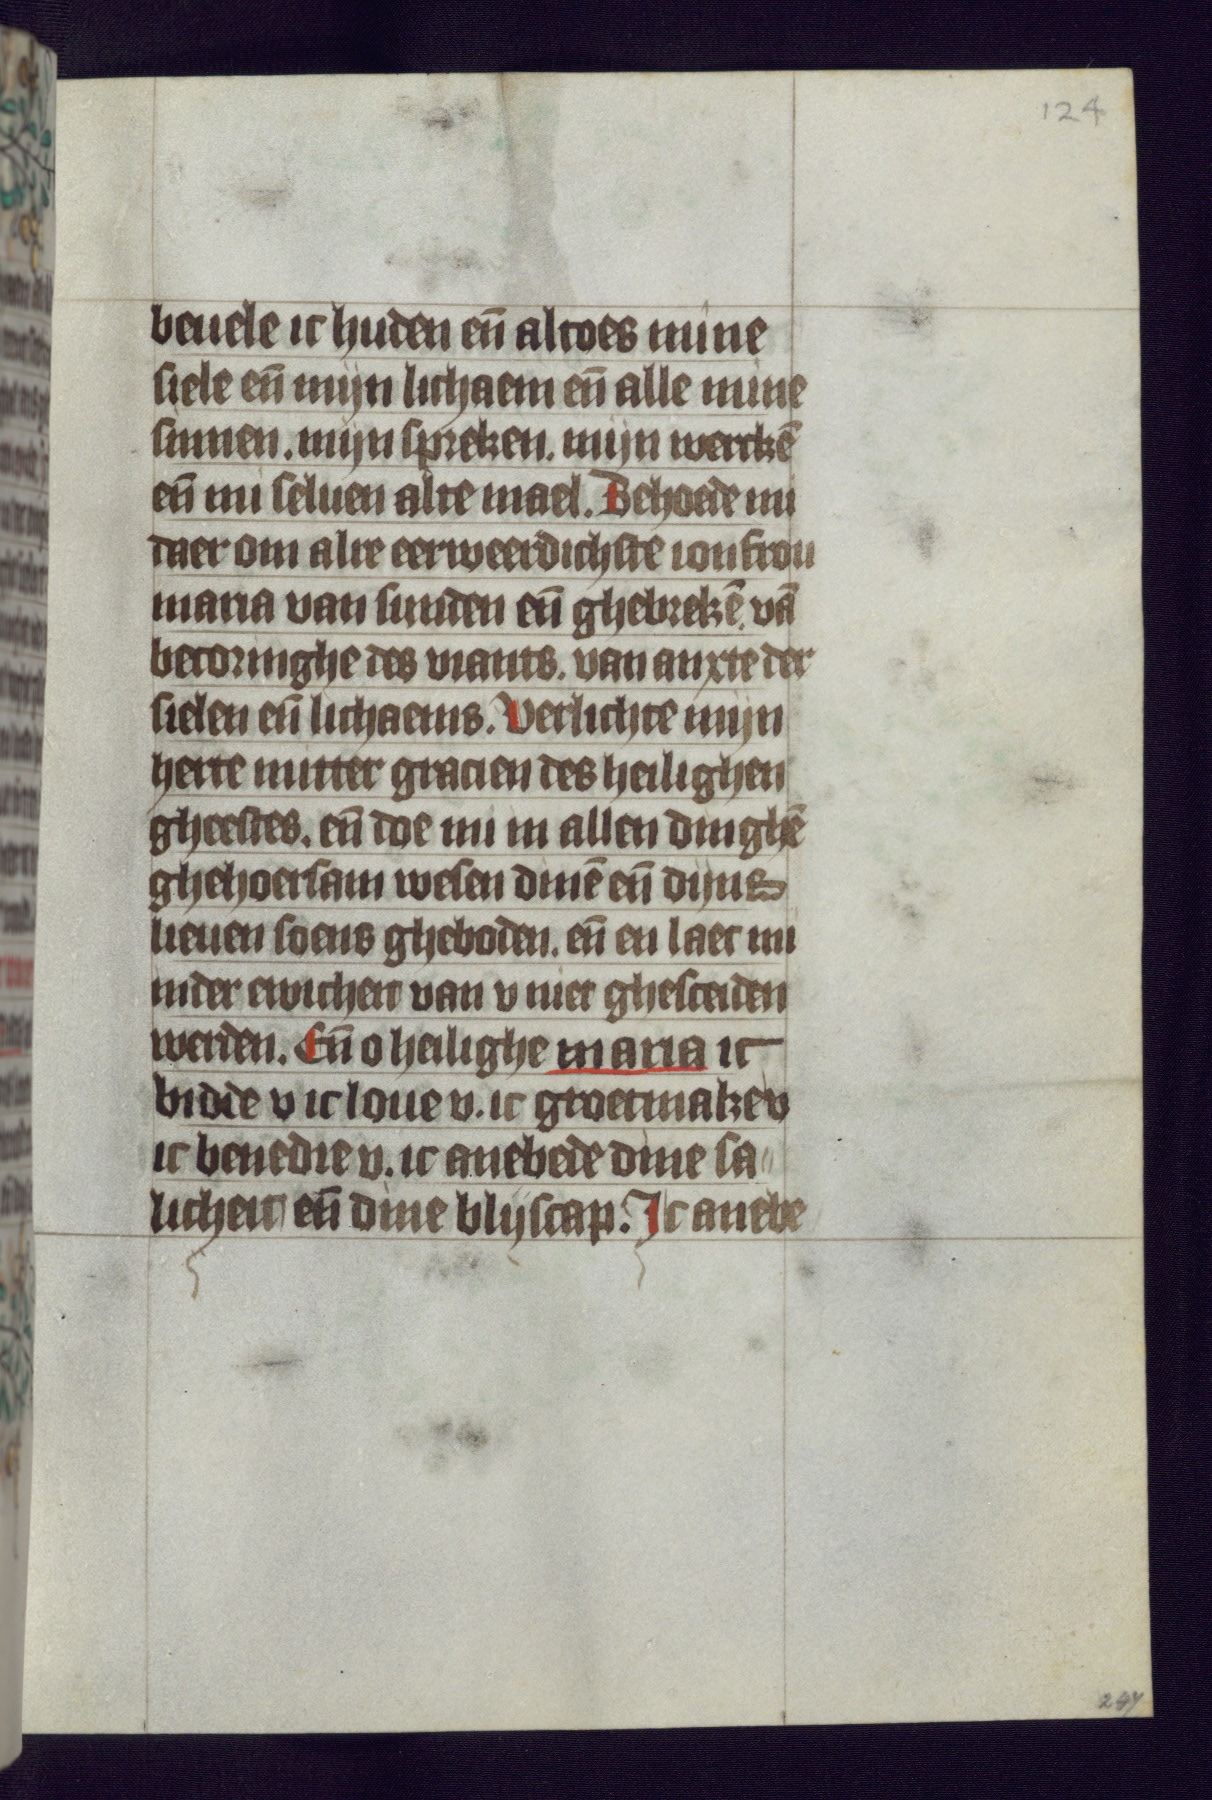 124
beuele ic huden eñ altoes mine
siele eñ mijn lichaem eñ alle mine
sinnen. mijn spreken. mijn werckē
eñ mi seluen alte mael. Behoede mi
daer om alre eerweerdichste ioufrou
maria van sunden eñ ghebrekē. vā
becoringhe des viants. van anxte der
sielen eñ lichaems. Verlichte mijn
herte mitter gracien des heilighen
gheestes. eñ doe mi in allen dinghē
ghehoersam wesen dinē eñ dijns
lieuen soens gheboden. eñ en laet mi
inder ewicheit van v niet ghesceiden
werden. Eñ o heilighe maria ic
bidde v ic loue v. ic groetmake v
ic benedie v. ic anebede dine sa
licheit eñ dine blijscap. Ic anebe
247